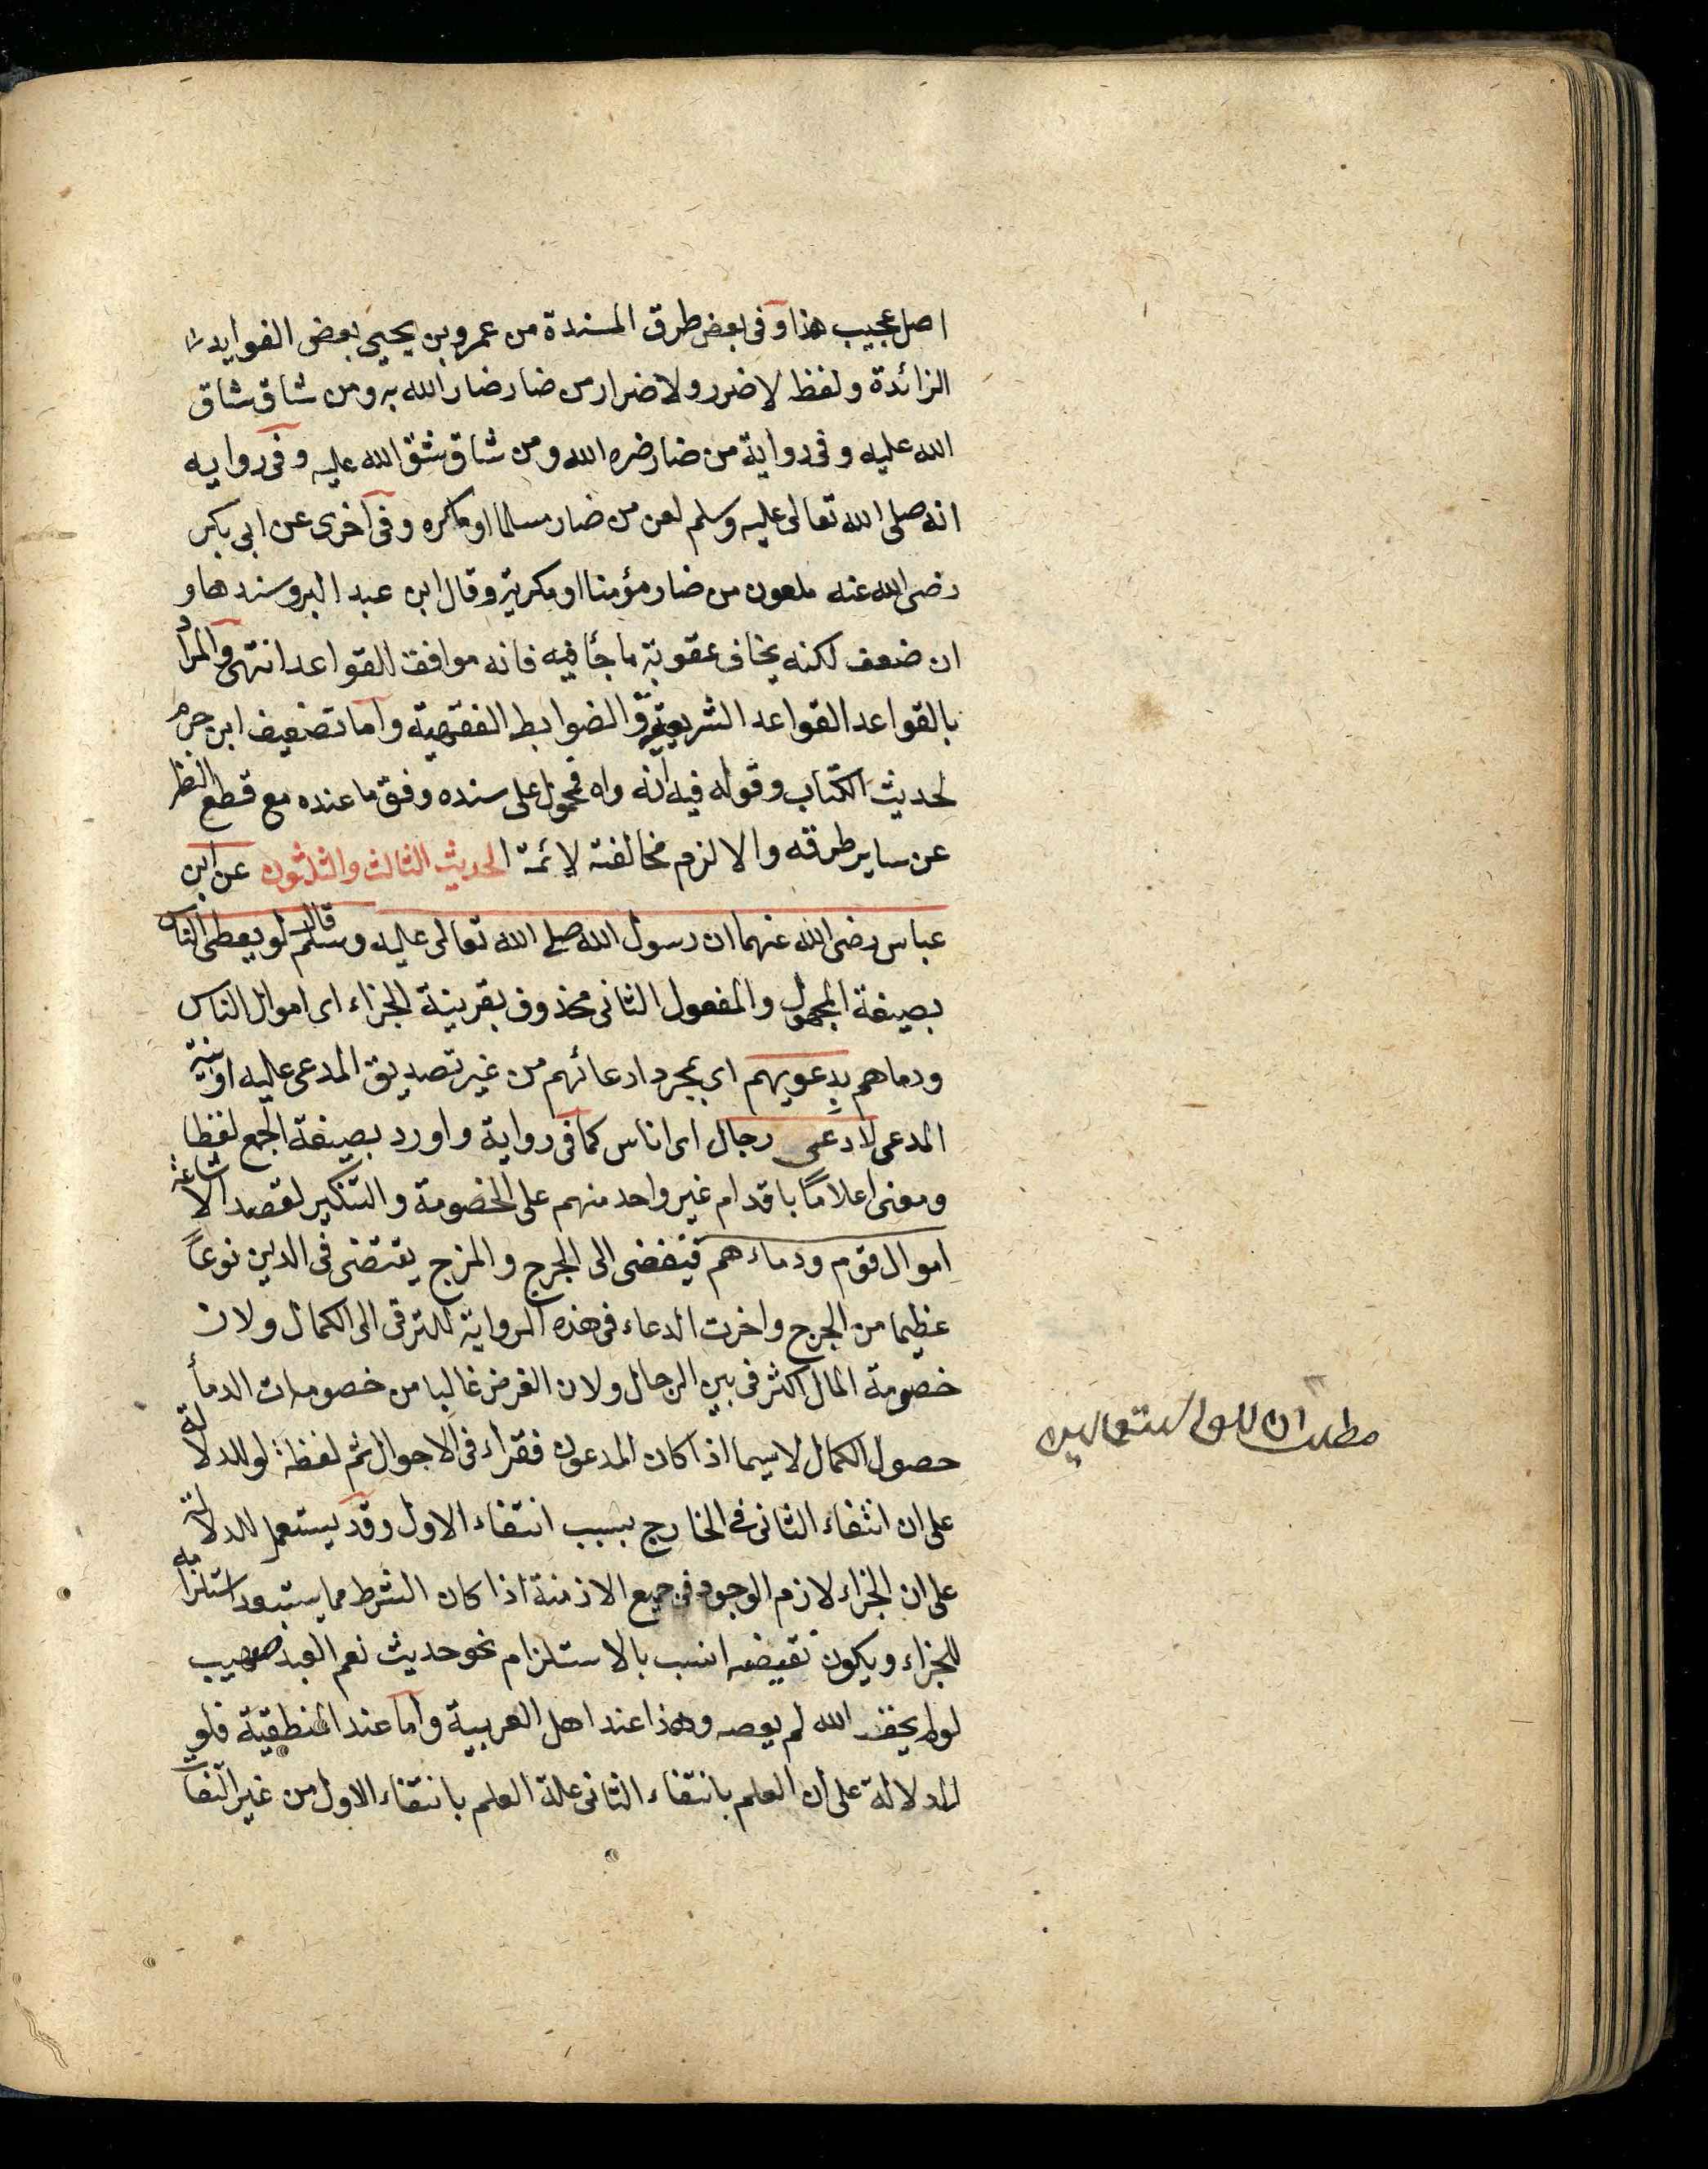 اصل عجيب هذا وفى بعض طرق المسندة من عمرو بن يحيى بعض الفوايد
الزائدة ولفظ لا ضرر ولا ضرار من ضار ضار الله به ومن شاق شاق
الله عليه وفى رواية من ضار ضره الله ومن شاق شق الله عليه وفى روايه
انه صلى الله تعالى عليه وسلم لعن من ضار مسلما او ماكره وفى اخرى عن ابى بكر
رضى الله عنه ملعون من ضار مؤمنا او مكر به وقال ابن عبد البر وسندها و
ان ضعف لكنه يخاف عقوبة ما جاٴ فيه فانه موافق للقواعد انتهى والمراد
بالقواعد القواعد الشريعية والضوابط الفقهية واما تضعيف ابن حزم
لحديث الكتاب وقوله فيه انه واه فمحمول على سنده وفق ما عنده مع قطع النظر
عن ساير طرقه والا لزم مخالفته لائمة الحديث الثالث والثلثون عن ابن
عباس رضى الله عنهما ان رسول الله صلى الله تعالى عليه وسلم قال لو يعطى الناس
بصيغة المجهول والمفعول الثانى محذوف بقرينة الجزاء اى اموال الناس
ودماهم بدعويهم اى بمجرد ادعائهم من غير تصديق المدعى عليه او بينة
المدعى لادعى رجال اى اناس كما فى رواية واورد بصيغة الجمع لفظا
ومعنى اعلامًا باقدام غير واحد منهم على الخصومة والتنكير لقصد الاشاعة
اموال قوم ودماءهم فيفضى الى الجرح والمزج يقتضى فى الدين نوعاً
عظيما من الجرح واخرت الدعاء فى هذه الرواية للترقى الى الكمال ولان
خصومة المال اكثر فى بين الرجال ولان الغرض غالبا من خصومات الدماٴ
حصول الكمال لاسيما اذا كان المدعون فقراء فى الاحوال ثم لفظة لو للدلالة
على ان انتفاء الثانى فى الخارج بسبب انتفاء الاول وقد يستعمل للدلالة
على ان الجزاء لازم الوجود فى جميع الازمنة اذا كان الشرط مما يستبعد استلزامه
للجزاء ويكون نقيضه انسب بالاستلزام نحو حديث نعم العبد صهيب
لو لم يخف الله لم يعصه وهذا عند اهل العربية واما عند المنطقية فلو
للدلالة على ان العلم بانتفاء الثانى علة العلم بانتفاء الاول من غير التفات
مطلب ان للو استعمالين